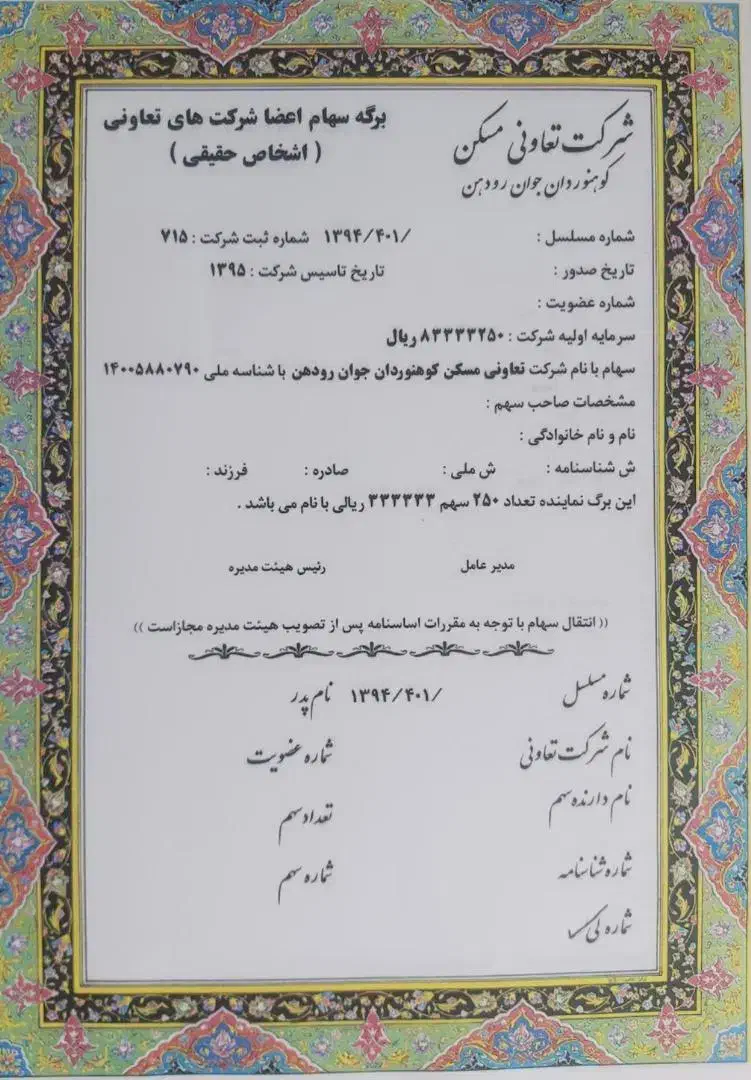 شرکت تعاونی مسکن
کوهنوردان جوان رودهن
برگه سهام اعضا شرکت های تعاونی
( اشخاص حقیقی )
شماره مسلسل : ۱۳۹۴/۴۰۱/ شماره ثبت شرکت : ۷۱۵
تاریخ صدور : تاریخ تاسیس شرکت : ۱۳۹۵
شماره عضویت :
سرمایه اولیه شرکت : ۸۳۳۳۳۲۵۰ ریال
سهام با نام شرکت تعاونی مسکن کوهنوردان جوان رودهن با شناسه ملی ۱۴۰۰۵۸۸۰۷۹۰
مشخصات صاحب سهم :
نام و نام خانوادگی :
ش شناسنامه : ش ملی : صادره : فرزند :
این برگ نماینده تعداد ۲۵۰ سهم ۳۳۳۳۳۳ ریالی با نام می باشد .
مدیر عامل رئیس هیئت مدیره
(( انتقال سهام با توجه به مقررات اساسنامه پس از تصویب هیئت مدیره مجازاست ))
شماره مسلسل ۱۳۹۴/۴۰۱/ نام پدر
نام شرکت تعاونی شماره عضویت
نام دارنده سهم تعداد سهم
شماره شناسنامه شماره سهم
شماره